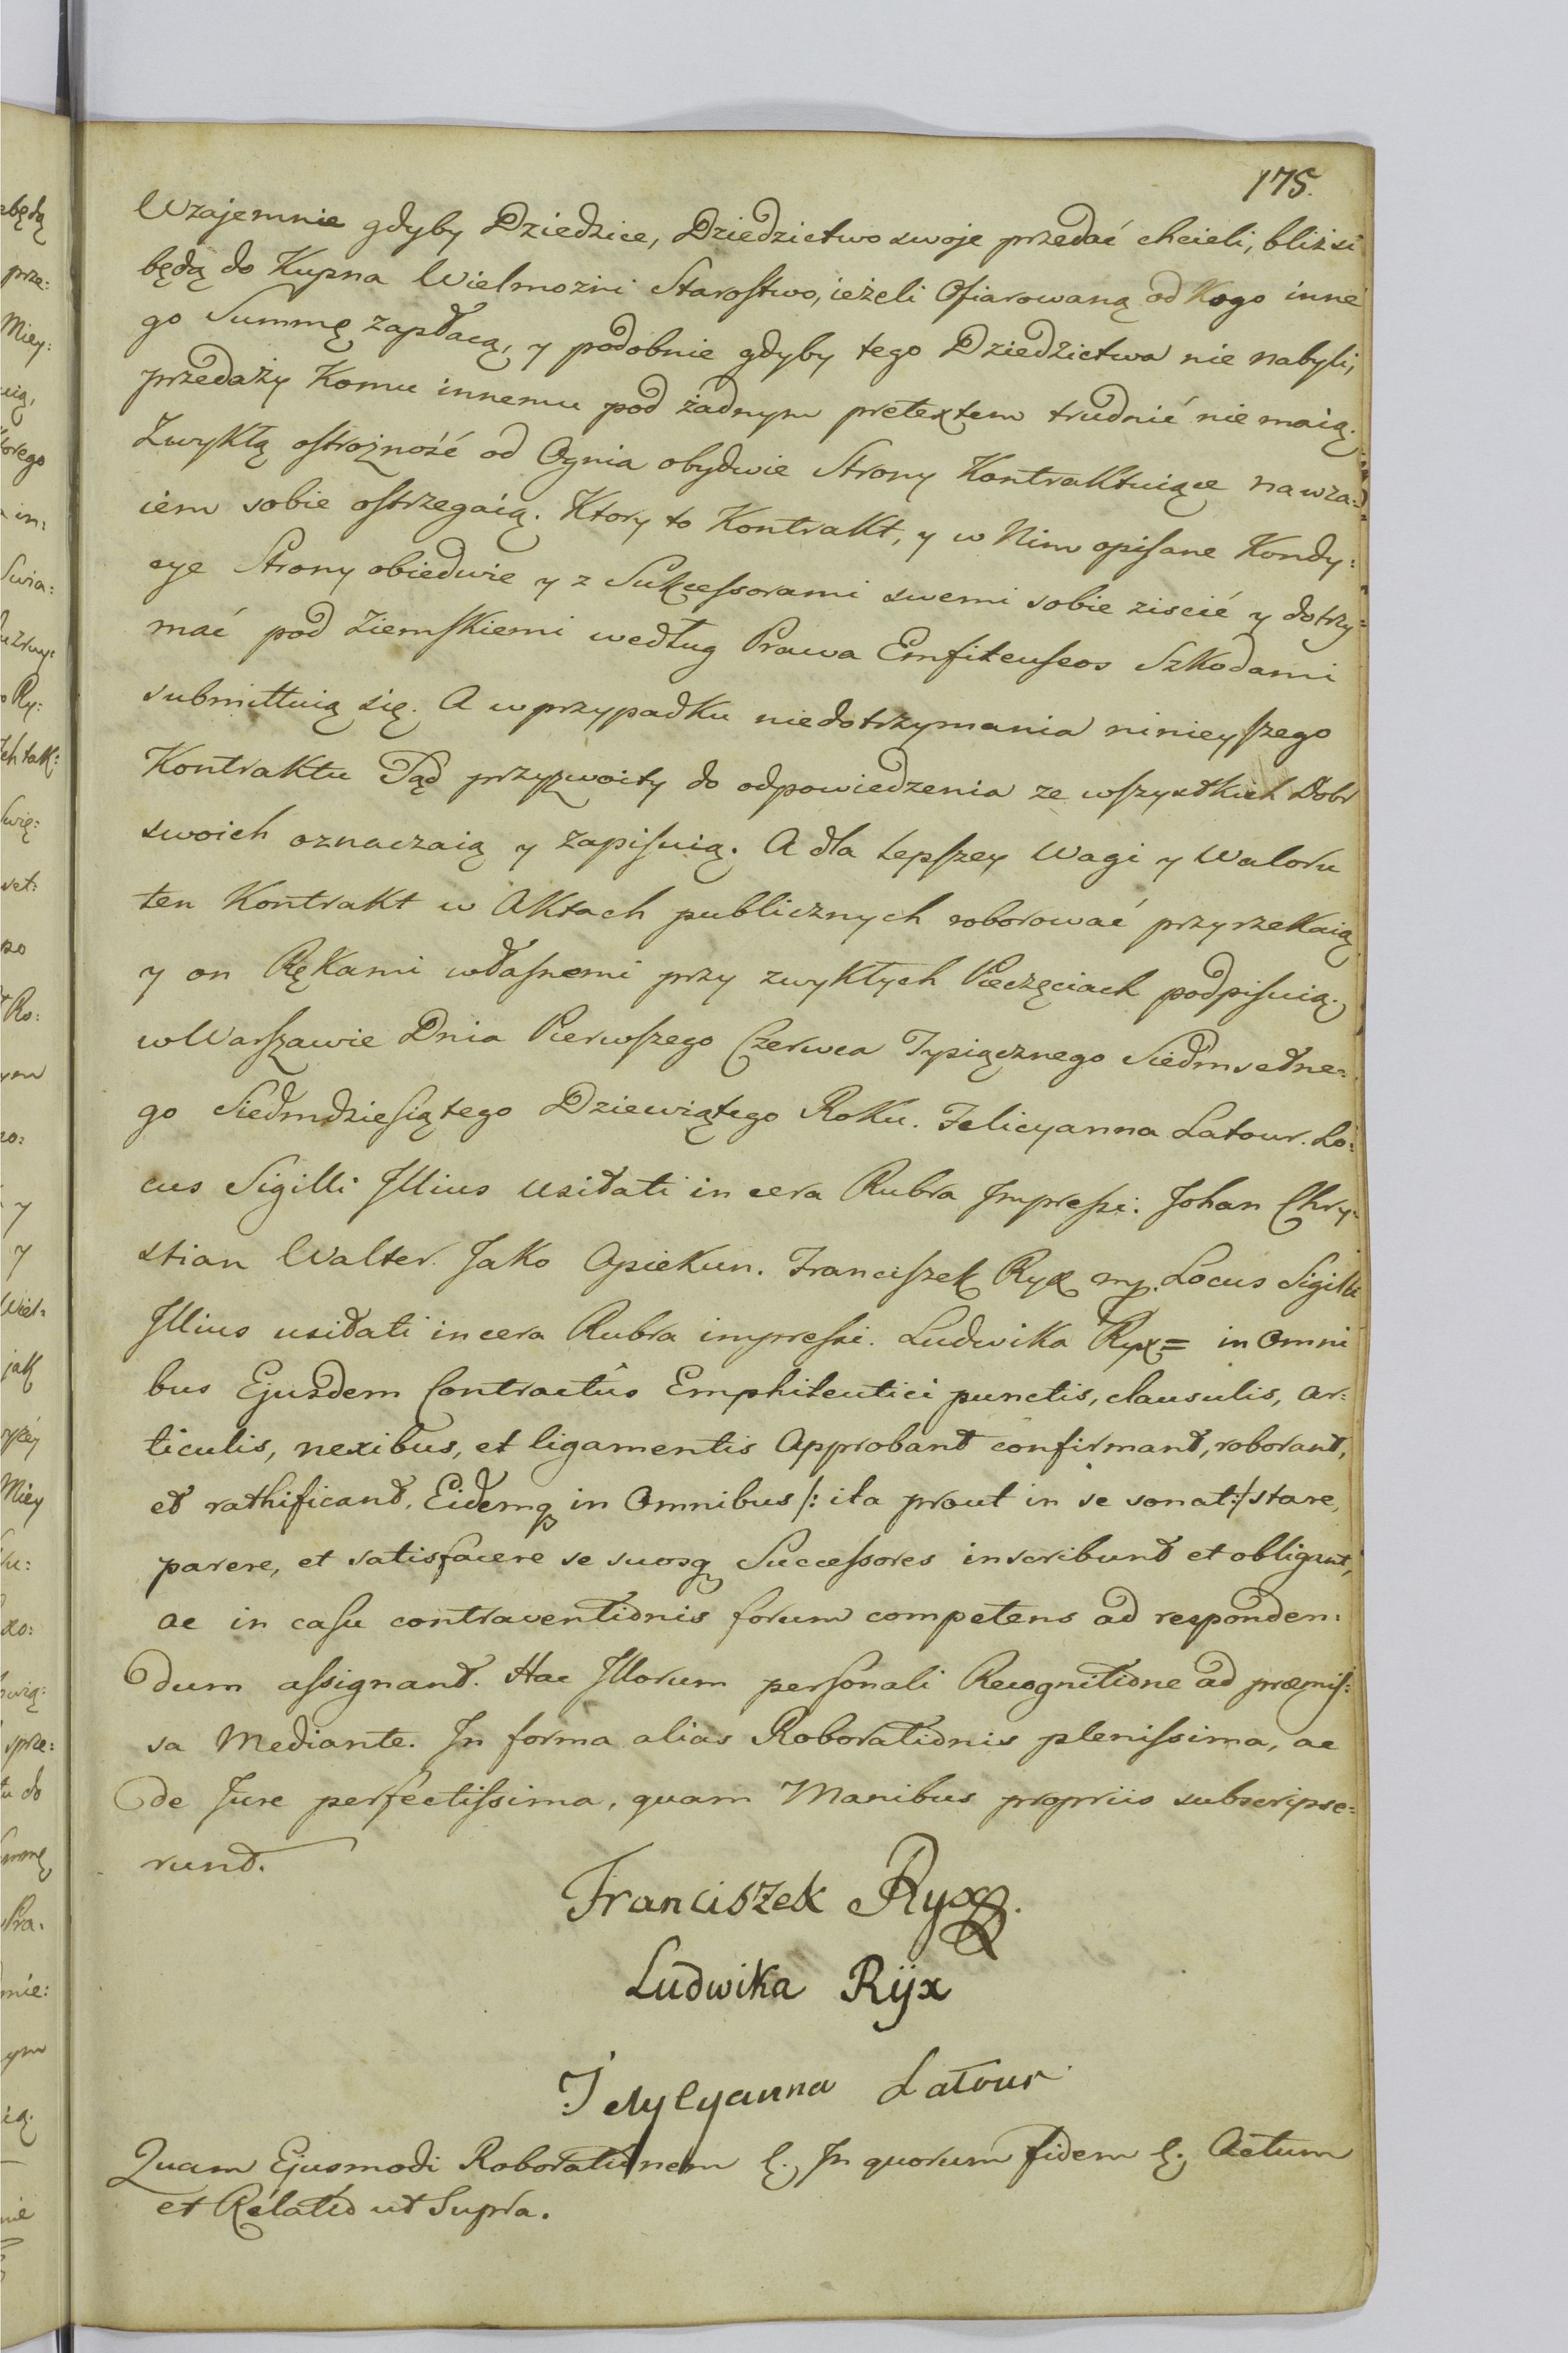 175.
Wzajemnie gdyby Dziedzice, Dziedzictwo swoje przedać chcieli, bliżsi
będą do Kupna Wielmożni Starostwo, ieżeli Ofiarowaną od Kogo inne
go Summę zapłacą, y podobnie gdyby tego Dziedzictwa nie nabyli,
przedaży Komu innemu pod żadnym pretextem trudnić nie maią.
Zwykłą ostrożność od Ognia obydwie Strony Kontraktuiące nawza=
iem sobie ostrzegaią. Ktory to Kontrakt, y w Nim opisane Kondy:
cye Strony obiedwie y z Sukcessorami swemi sobie ziscić y dotrzy=
mać pod Ziemskiemi według Prawa Emfiteuseos Szkodami
submittuią się. A w przypadku niedotrzymania ninieyszego
Kontraktu Sąd przyzwoity do odpowiedzenia ze wszystkich Dobr
swoich oznaczaią y zapisuią. A dla lepszey Wagi y Waloru
ten Kontrakt w Aktach publicznych roborować przyrzekaią
y on Rękami własnemi przy zwykłych Pieczęciach podpisuią.
w Warszawie Dnia Pierwszego Czerwca Tysiącznego Siedmsetne=
go Siedmdziesiątego Dziewiątego Roku. Felicyanna Latour. Lo:
cus Sigilli Illius usitati in cera Rubra Impressi: Johan Chry=
stian Walter. Jako Opiekun. Franciszek Ryx mp. Locus Sigilli
Illius usitati in cera Rubra impressi. Ludwika Ryx = in Omni
bus Ejusdem Contractûs Emphiteutici punctis, clausulis, ar:
ticulis, nexibus, et ligamentis Approbant confirmant, roborant,
et rathificant. Eidemq in Omnibus /: ita prout in se sonat :/ stare,
parere, et satisfacere se suosq Successores inscribunt et obligant,
ac in casu contraventionis forum competens ad responden:
dum assignant. Hac Illorum personali Recognitione ad præmis:
sa Mediante. In forma alias Roborationis plenissima, ac
de Jure perfectissima, quam Manibus propriis subscripse=
runt.
Franciszek Ryx
Ludwika Rijx
Felycyanna Latour
Quam Ejusmodi Roborationem &. In quorum fidem &. Actum
et Relatio ut Supra.